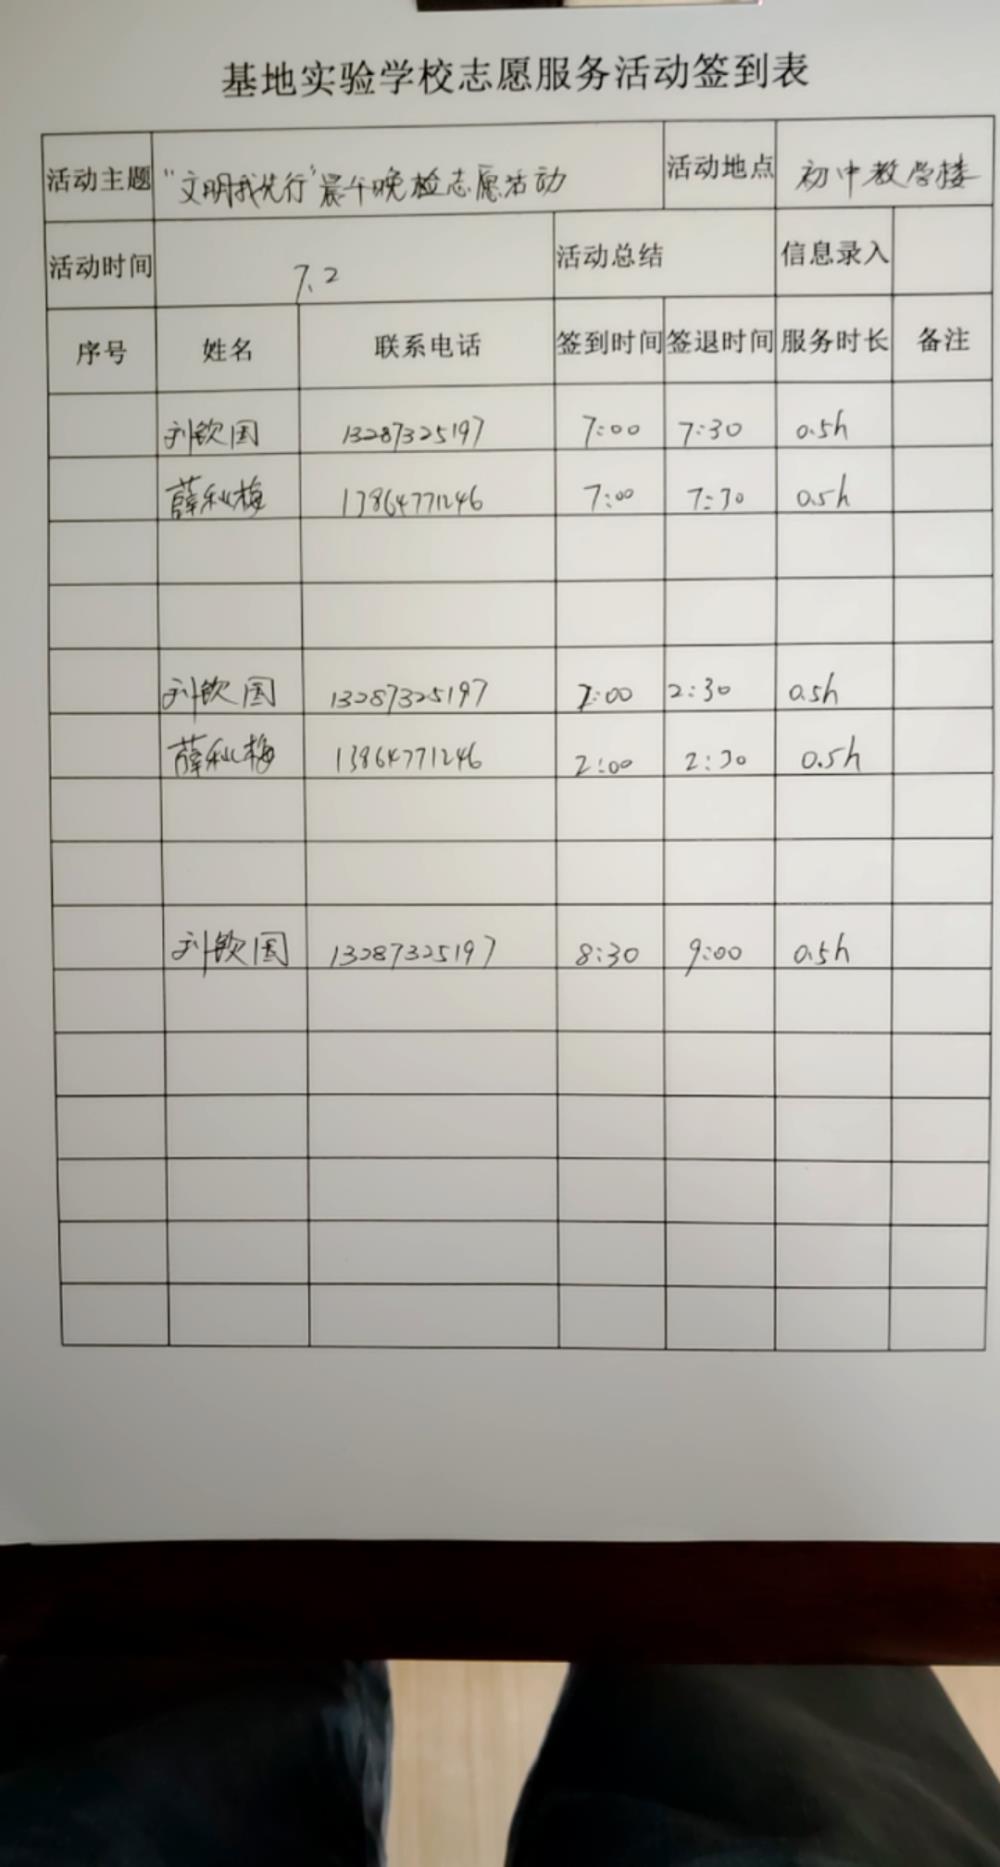 基地实验学校志愿服务活动签到表
活动主题 “文明我先行”晨午晚检志愿活动 活动地点 初中教学楼
活动时间 7.2 活动总结 信息录入
序号 姓名 联系电话 签到时间 签退时间 服务时长 备注
刘钦国 13287325197 7:00 7:30 0.5h
薛秋梅 13864771246 7:00 7:30 0.5h
刘钦国 13287325197 2:00 2:30 0.5h
薛秋梅 13864771246 2:00 2:30 0.5h
刘钦国 13287325197 8:30 9:00 0.5h